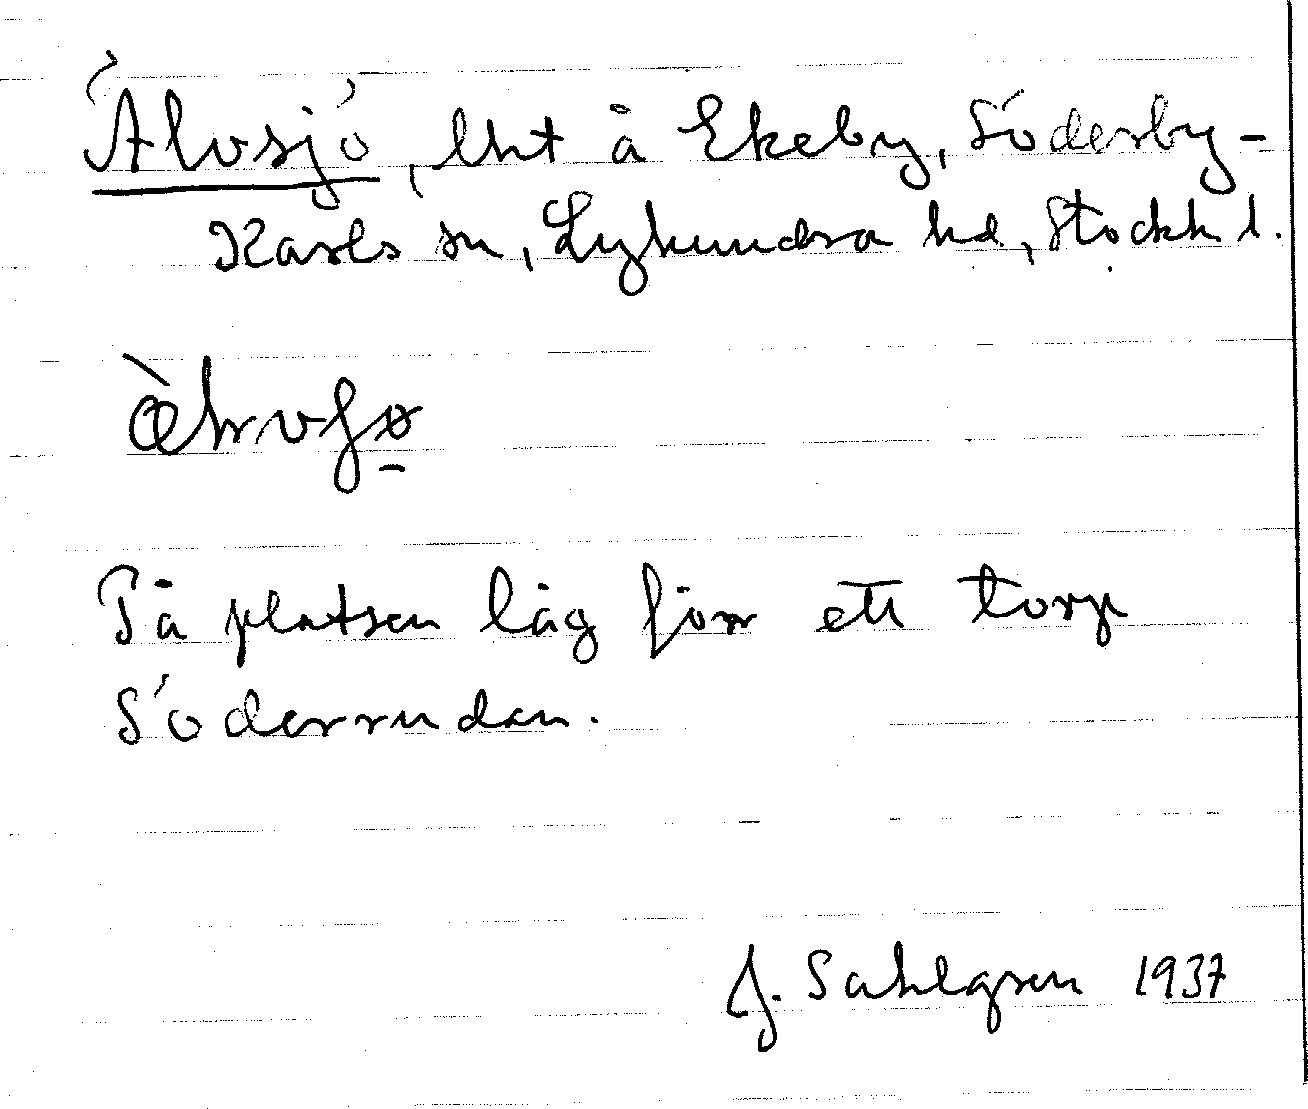 Älvsjö, lht å Ekeby, Söderby-
Karls sn, Lyhundra hd, Stockh l.
På platsen låg förr ett torp
Söderrudan.
J. Sahlgren 1937